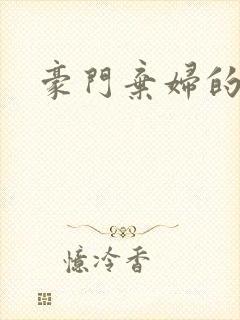 豪門棄婦的
憶冷香